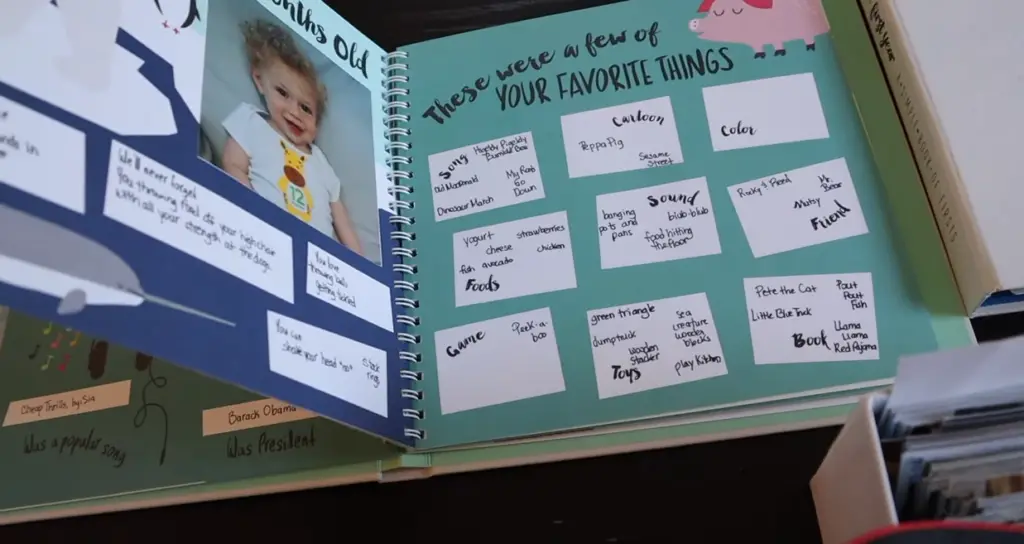 nths Old
nds in
We'll never forget
You throwing food off your highchair
with all your strength at the dogs.
You love
throwing balls
getting tickled
You can
shake your head "no"
Stack
rings
Cheap Thrills by Sia
Was a popular song
Barack Obama
Was President
These were a few of
YOUR FAVORITE THINGS
Song
Higglety Pigglety
Bumble Bee
Old MacDonald
My Roof
Go
Down
Dinosaur March
Cartoon
Peppa Pig
Sesame
Street
Color
yogurt strawberries
cheese chicken
fish avocado
Foods
Sound
banging
pots and
pans
blub-blub
food hitting
the floor
Reed
Mr.
Bear
Friend
Game
Peek-a
boo
green triangle
dumptruck
sea
creature
wooden
blocks
wooden
stacker
Toys
play kitchen
Pete the Cat
Pout
Pout
Fish
Little Blue Truck
Book
Llama
Llama
Red Pajama
first year
12